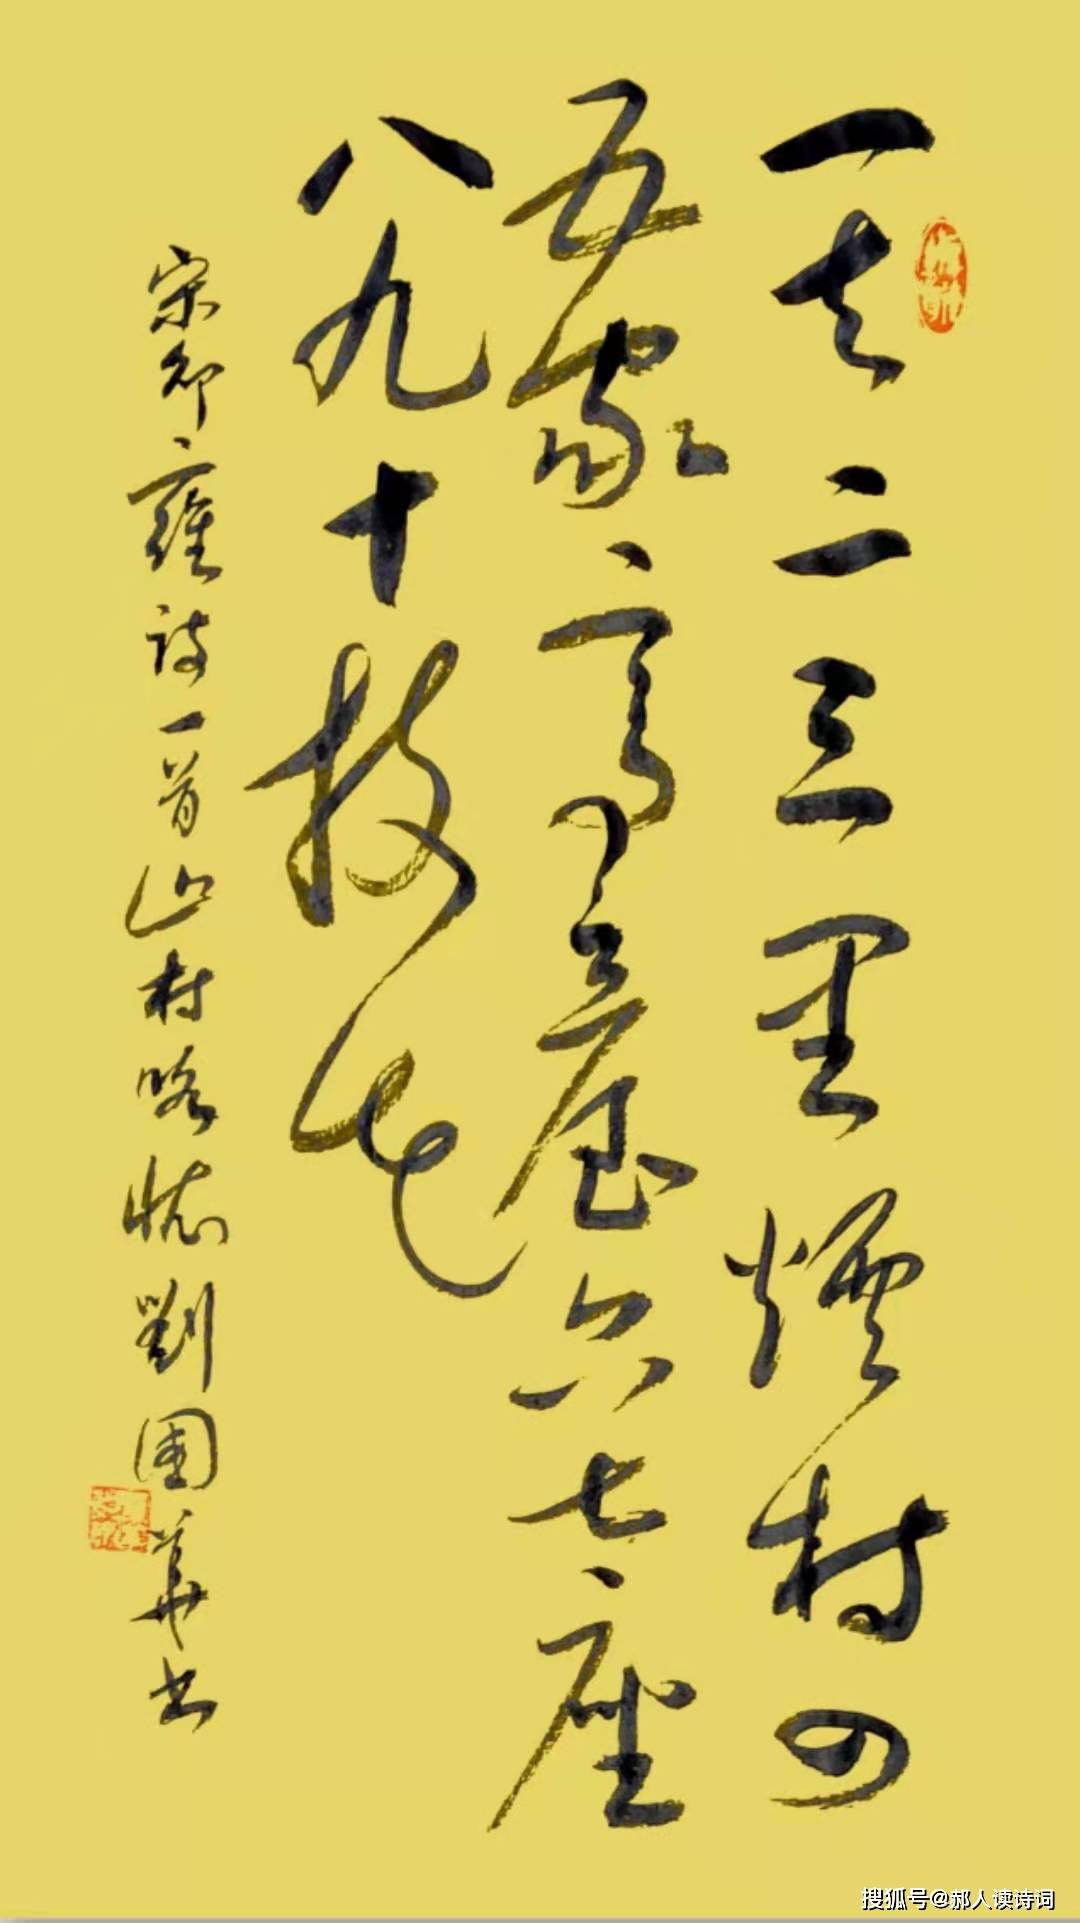 一去二三里煙村四
五家亭臺六七座
八九十枝花
宋邵雍詩一首山村咏懷劉國華书
搜狐号@郝人读诗词